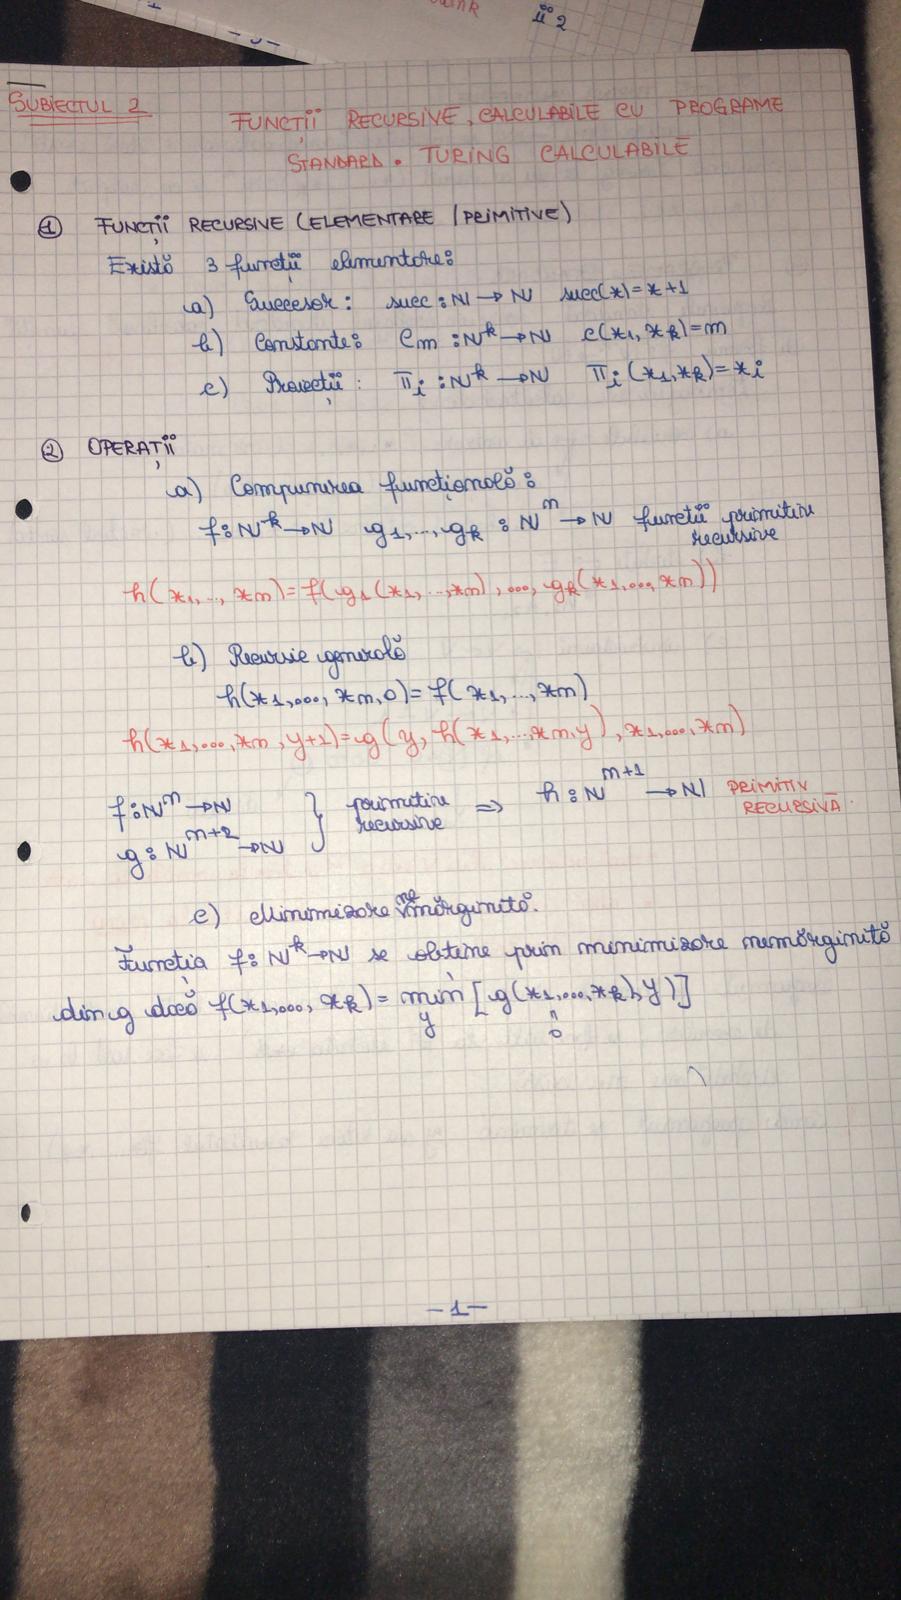 ii° 2
SUBIECTUL 2
FUNCȚII RECURSIVE, CALCULABILE CU PROGRAME
STANDARD. TURING CALCULABILE
① FUNCȚII RECURSIVE (ELEMENTARE / PRIMITIVE)
Există 3 funcții elementare:
a) Succesor: succ: N → N succ(x) = x+1
b) Constante: Cm : N^k → N c(x1, xk) = m
c) Proiecții: πi : N^k → N πi (x1, xk) = xi
② OPERAȚII
a) Compunerea funcțională:
f: N^k → N g1, ..., gk : N^n → N funcții primitiv
recursive
h(x1, .., xn) = f(g1(x1, .., xn), ..., gk(x1, ..., xn))
b) Recursie generală
h(x1, ..., xn, 0) = f(x1, ..., xn)
h(x1, ..., xn, y+1) = g(y, h(x1, ..., xn, y), x1, ..., xn)
f: N^n → N } primitiv recursive ⇒ h: N^n+1 → N PRIMITIV RECURSIVĂ
g: N^n+2 → N
c) Minimizare nemărginită.
Funcția f: N^k → N se obține prin minimizare nemărginită
din g dacă f(x1, ..., xk) = min [g(x1, ..., xk), y)]
y = 0
-1-